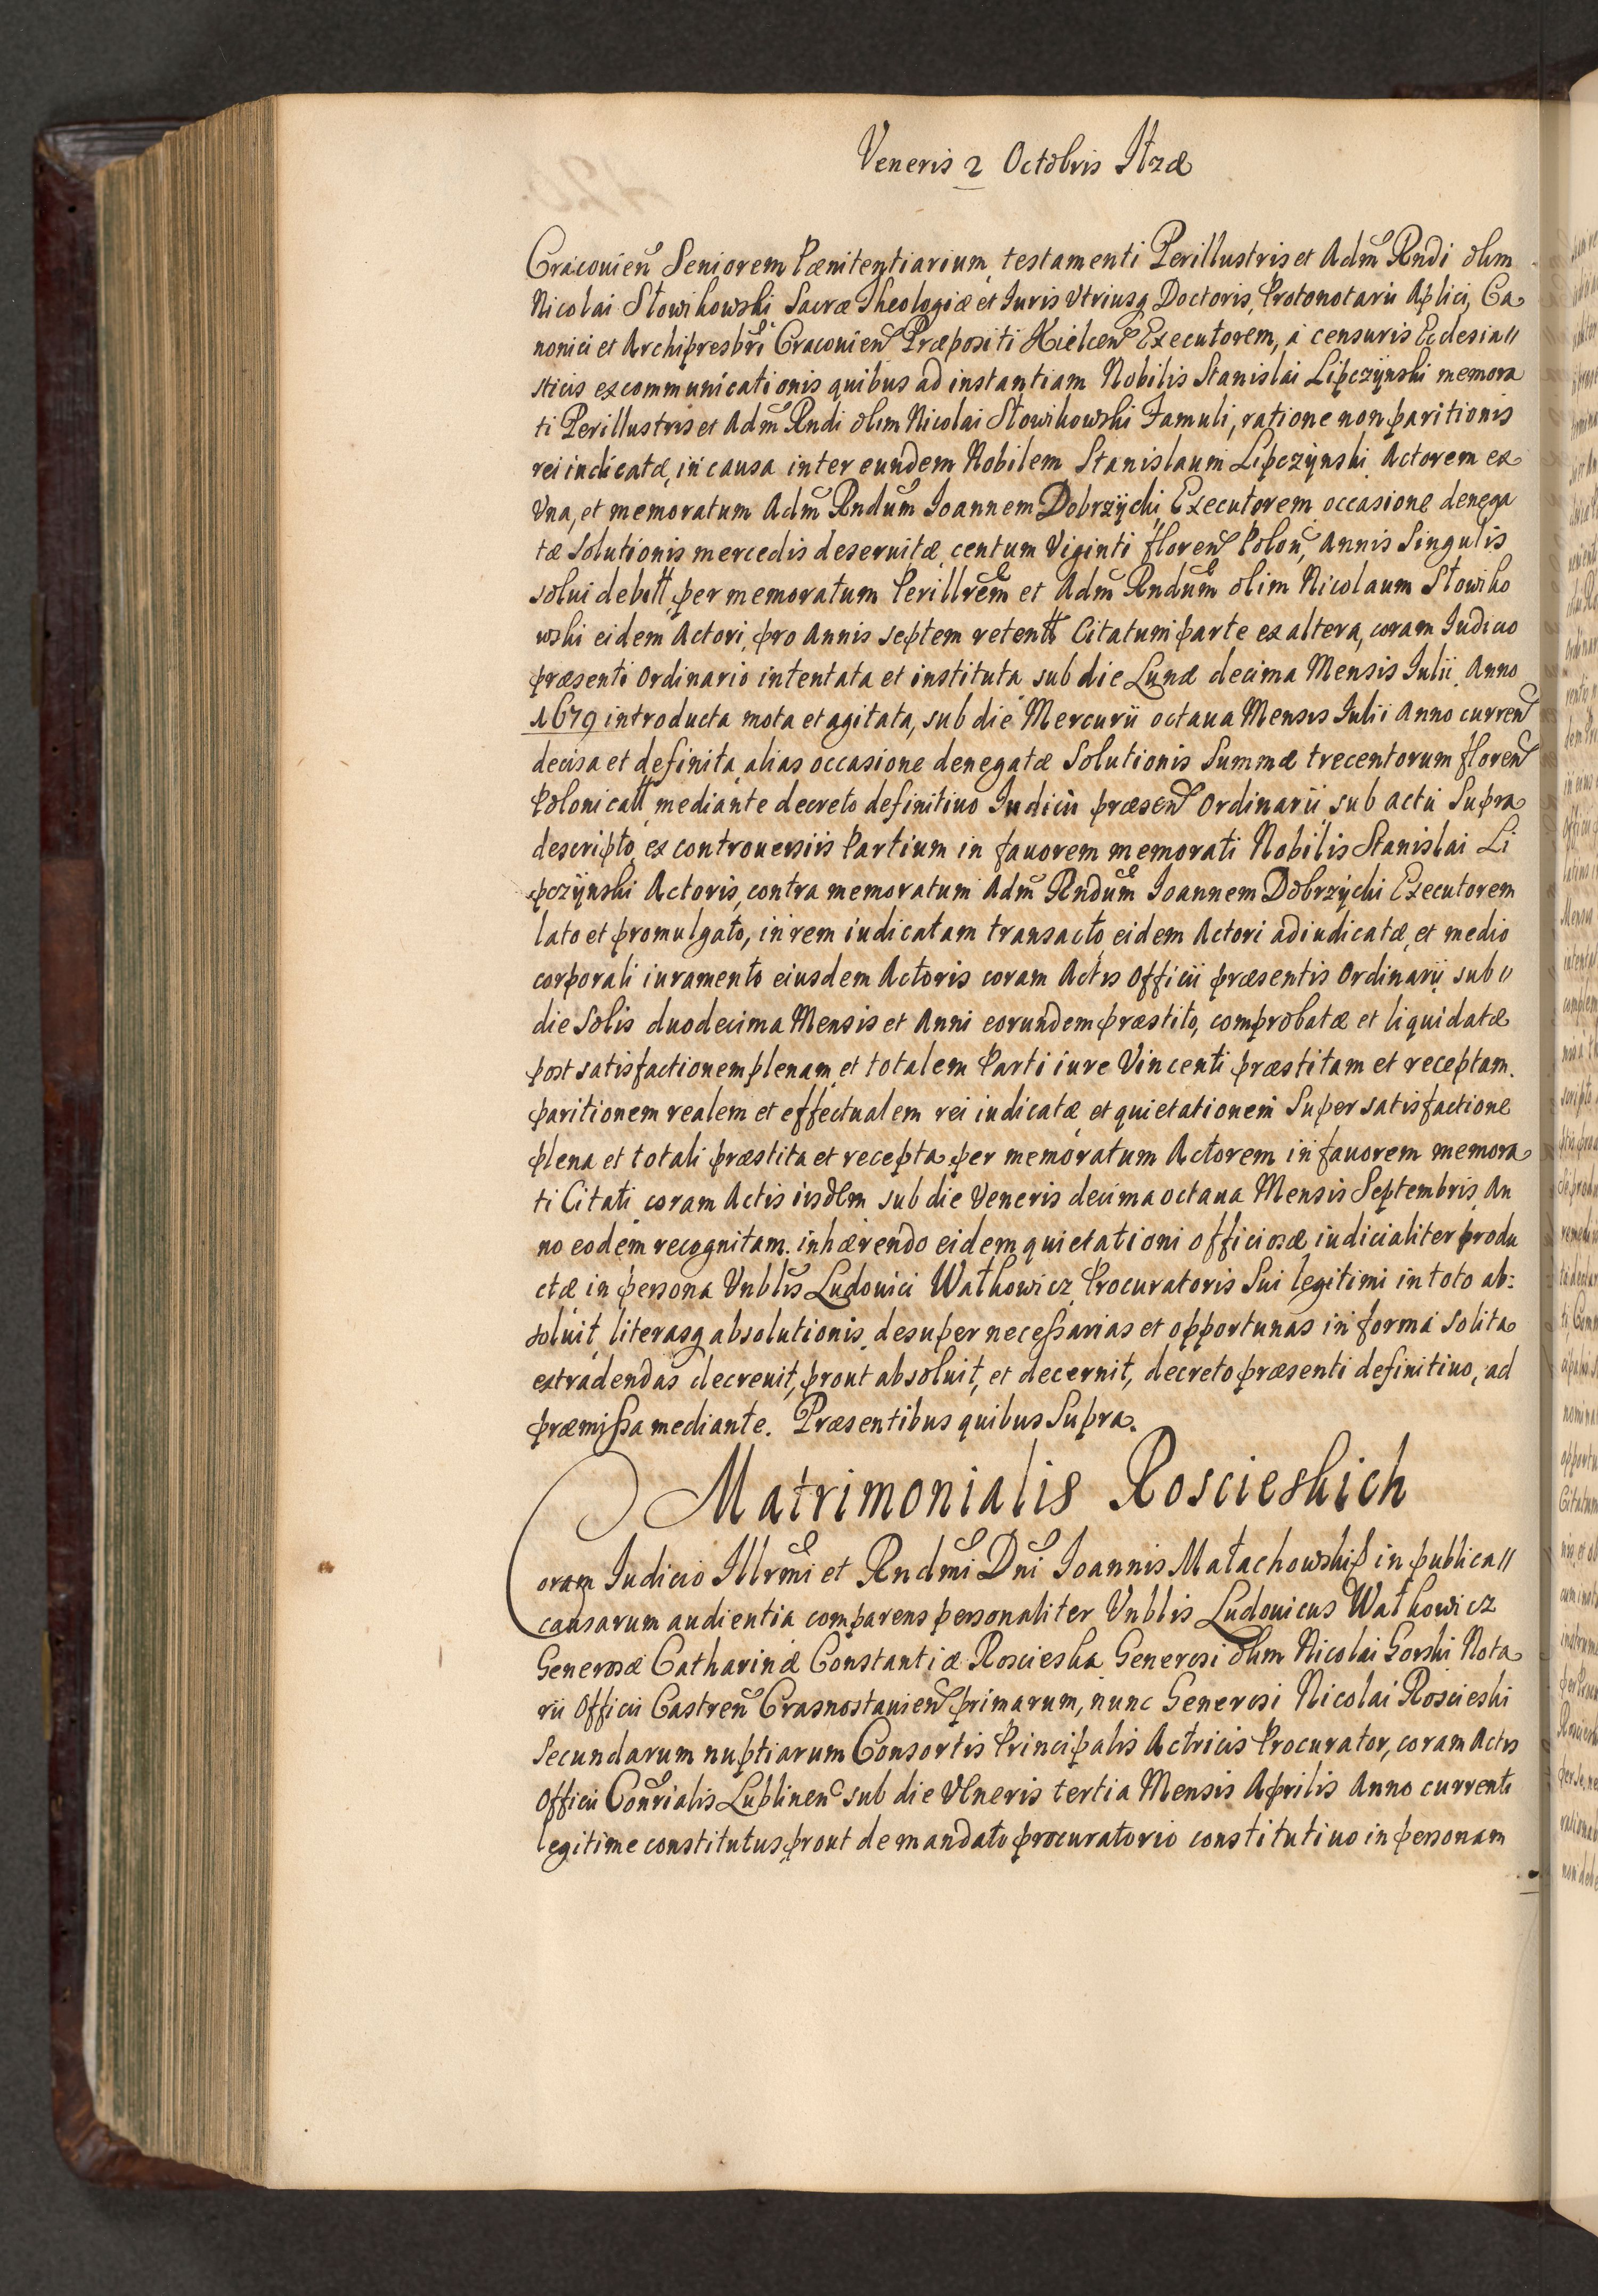 Veneris 2 Octobris Itzæ
Cracouien Seniorem Pænitentiarium, testamenti Perillustris et Adm Rndi olim
Nicolai Słowikowski Sacræ Theologiæ et Iuris Vtriusq Doctoris, Protonotarii Aplici, Ca
nonici et Archipresbri Cracouien Præpositi Kielcen Executorem, a censuris Ecclesia〃
sticis excommunicationis quibus ad instantiam Nobilis Stanislai Lipczÿnski memora
ti Perillustris et Adm Rndi olim Nicolai Słowikowski Famuli, ratione non paritionis
rei iudicatæ, in causa inter eundem Nobilem Stanislaum Lipczÿnski Actorem ex
Vna, et memoratum Adm Rndum Ioannem Dobrzÿcki Executorem occasione denega
tæ solutionis mercedis deseruitæ, centum Viginti floren Polon, Annis Singulis
solui debott, per memoratum Perillrem et Adm Rndum olim Nicolaum Słowiko
wski eidem Actori, pro Annis septem retentt Citatum parte ex altera, coram Iudicio
præsenti Ordinario intentata et instituta sub die Lunæ decima Mensis Iulii Anno
1679 introducta mota et agitata, sub die Mercurii octaua Mensis Iulii Anno curren
decisa et definita, alias occasione denegatæ Solutionis Summæ trecentorum floren
Polonicall, mediante decreto definitiuo Iudicii præsen Ordinarii, sub actu Supra
descripto, ex controuersiis Partium in fauorem memorati Nobilis Stanislai Li
pczÿnski Actoris, contra memoratum Adm Rndum Ioannem Dobrzÿcki Executorem
lato et promulgato, in rem iudicatam transacto, eidem Actori adiudicatæ, et medio
corporali iuramento eiusdem Actoris coram Actis Officii præsentis Ordinarii sub〃
die Solis duodecima Mensis et Anni eorundem præstito, comprobatæ et liquidatæ
post satisfactionem plenam et totalem Parti iure Vincenti præstitam et receptam.
paritionem realem et effectualem rei iudicatæ et quietationem Super satisfactione
plena et totali præstita et recepta per memoratum Actorem in fauorem memora
ti Citati coram Actis iisdem sub die Veneris decima octaua Mensis Septembris, An
no eodem recognitam. inhærendo eidem quietationi officiosæ iudicialiter produ
ctæ in persona Vnblis Ludouici Wałkowicz Procuratoris Sui legitimi in toto ab:
soluit, literasq absolutionis desuper necessarias et opportunas in forma solita
extradendas decreuit, prout absoluit, et decernit, decreto præsenti definitiuo, ad
præmissa mediante. Præsentibus quibus Supra.
Matrimonialis Roscieskich
Coram Iudicio Illrmi et Rndmi Dni Ioannis Małachowski in publica〃
causarum audientia comparens personaliter Vnblis Ludouicus Wałkowicz
Generosæ Catharinæ Constantiæ Roscieska Generosi olim Nicolai Gorski Nota
rii Officii Castren Crasnostauien primarum, nunc Generosi Nicolai Roscieski
Secundarum nuptiarum Consortis Principalis Actricis Procurator, coram Actis
Officii Conrialis Lublinen sub die Veneris tertia Mensis Aprilis Anno currenti
legitime constitutus prout de mandato procuratorio constitutiuo in personam